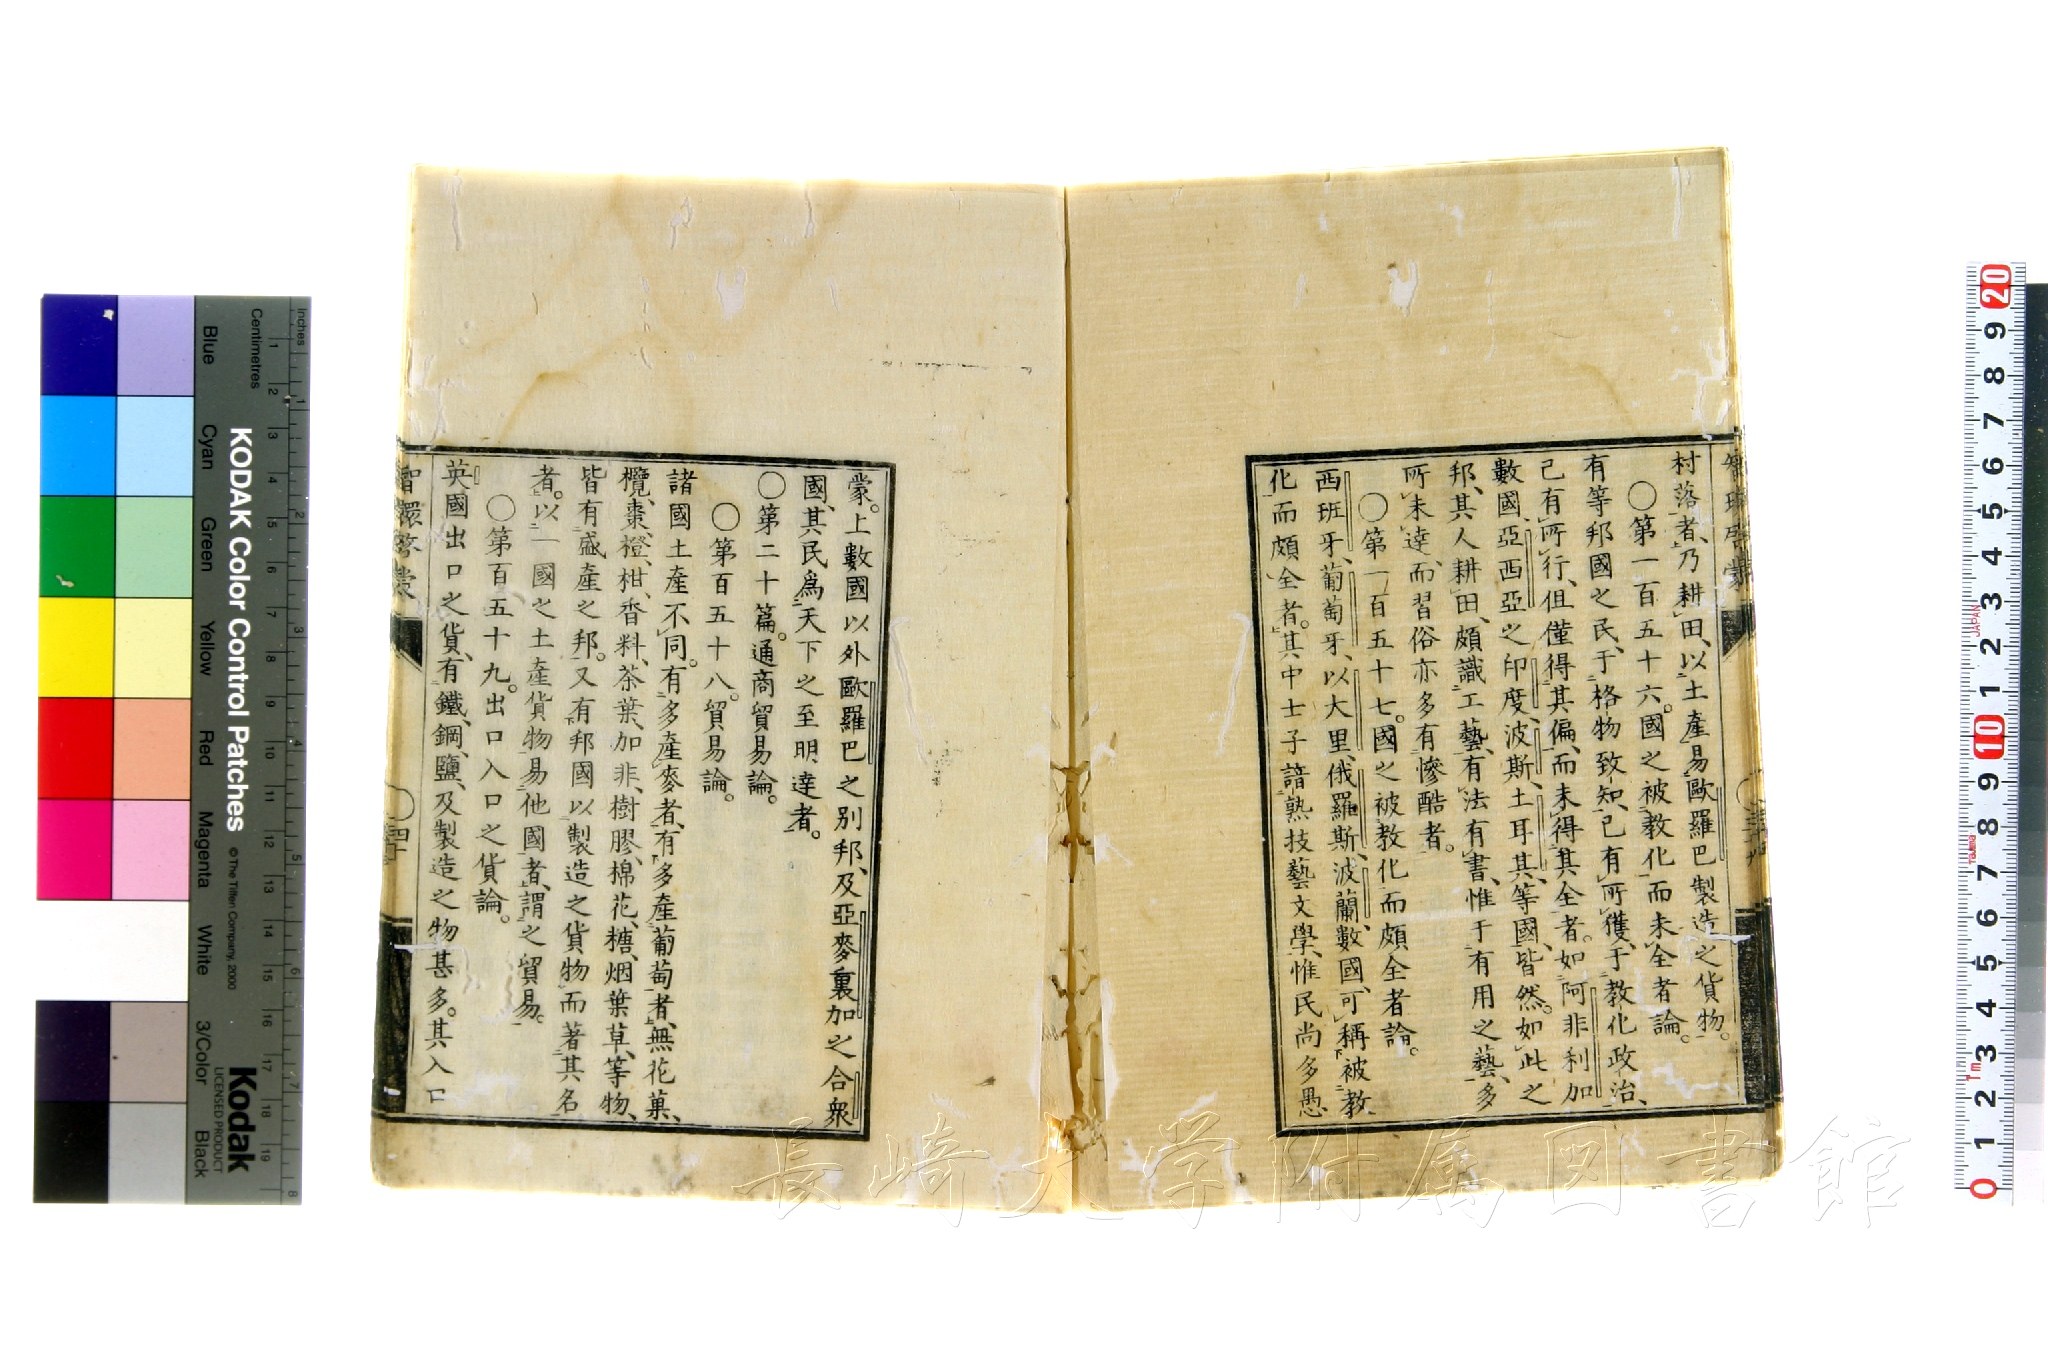 村落者、乃耕田、以土產易歐羅巴製造之貨物。
○第一百五十六。國之被教化而未全者論。
有等邦國之民、于格物致知、已有所獲、于教化政治、
已有所行、但僅得其偏、而未得其全者。如阿非利加
數國、亞西亞之印度、波斯、土耳其、等國、皆然。如此之
邦、其人耕田、頗識工藝、有法有書、惟于有用之藝、多
所未達、而習俗亦多有慘酷者。
○第一百五十七。國之被教化而頗全者論。
西班牙、葡萄牙、以大里、俄羅斯、波蘭、數國、可稱被教
化而頗全者。其中士子諳熟技藝文學、惟民尚多愚
蒙。上數國以外歐羅巴之別邦、及亞麥裏加之合衆
國、其民爲天下之至明達者。
○第二十篇。通商貿易論。
○第百五十八。貿易論。
諸國土產不同。有多產麥者、有多產葡萄者、無花菓、
欖、棗、橙、柑、香料、茶葉、加非、樹膠、棉花、糖、烟葉草、等物、
皆有盛產之邦。又有邦國以製造之貨物而著其名
者。以一國之土產貨物易他國者、謂之貿易。
○第百五十九。出口入口之貨論。
英國出口之貨、有鐵、鋼、鹽、及製造之物甚多。其入口
智環啓蒙
智環啓蒙
Inches
Centimetres
KODAK Color Control Patches
© The Tiffen Company, 2000
Kodak
LICENSED PRODUCT
Blue
Cyan
Green
Yellow
Red
Magenta
White
3/Color
Black
1 2 3 4 5 6 7 8 9 10 11 12 13 14 15 16 17 18 19
1 2 3 4 5 6 7 8
20 9 8 7 6 5 4 3 2 1 10 9 8 7 6 5 4 3 2 1 0
JAPAN
長崎大学附属図書館